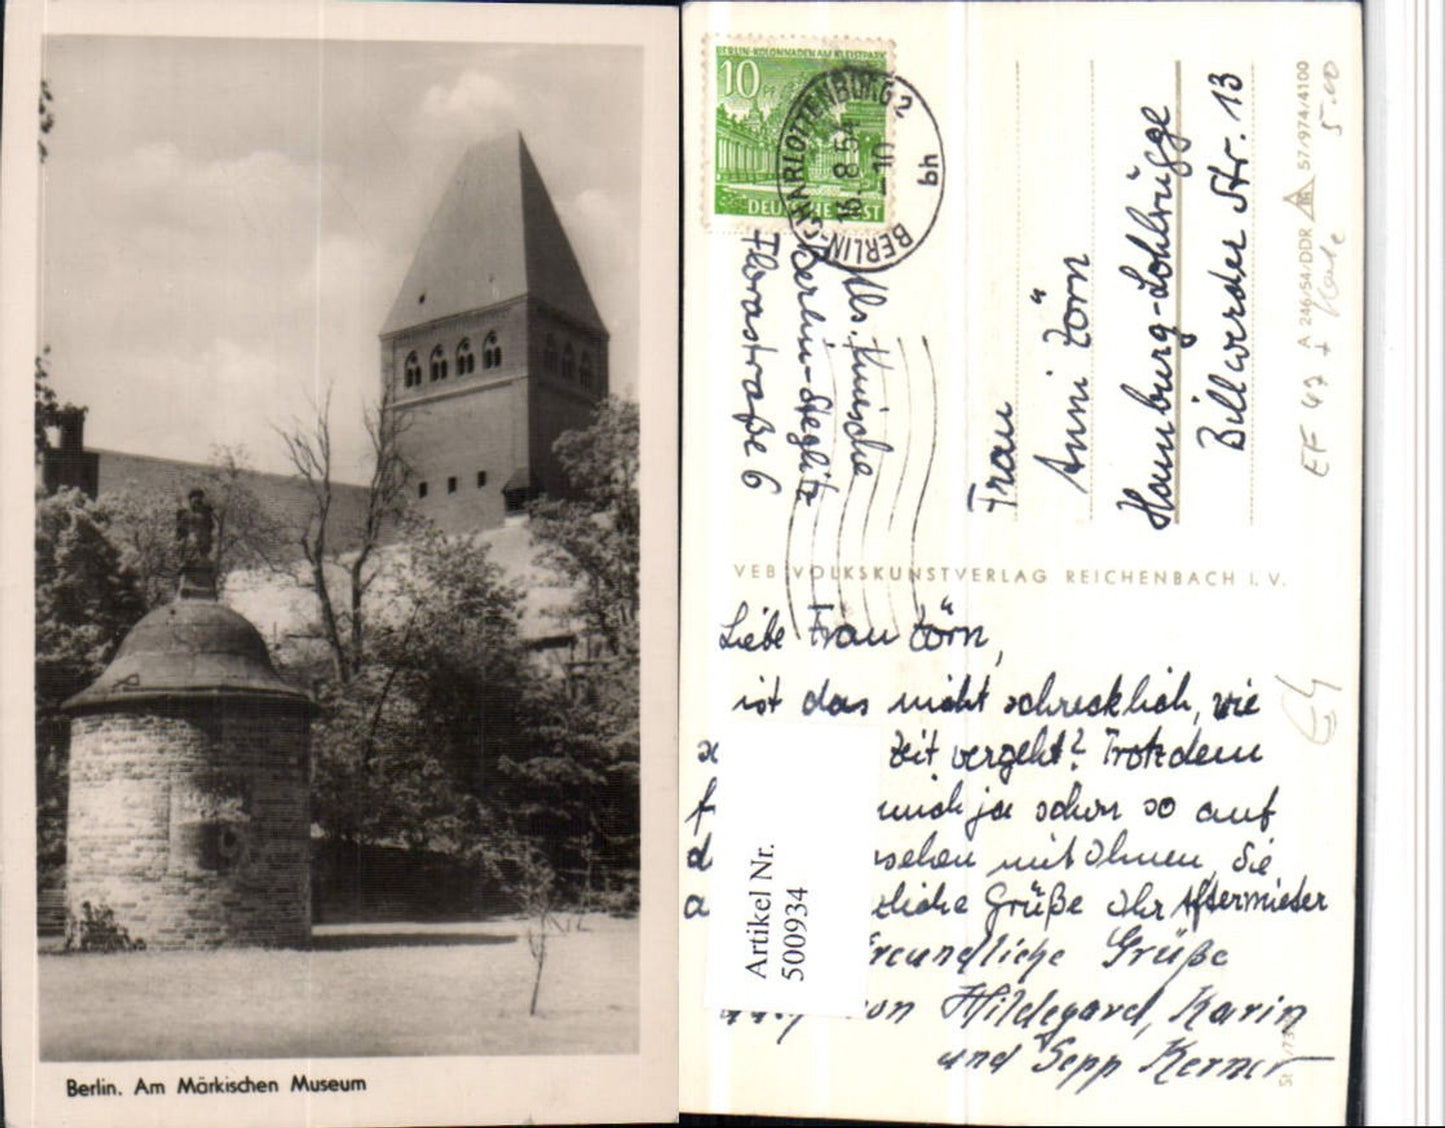 Berlin. Am Märkischen Museum
BERLIN-KOLONNADEN AM KLEISTPARK
10
DEUTSCHE POST
BERLIN-CHARLOTTENBURG 2
16.8.54
10
bh
Abs. Kunische
Berlin-Steglitz
Florastraße 6
Frau
Anni Zörn
Hamburg-Lohbrügge
Billwerder Str. 13
A 246/54/DDR 57/974/4100
5.00
EF 47
VEB VOLKSKUNSTVERLAG REICHENBACH I. V.
Liebe Frau Zörn,
ist das nicht schrecklich, wie
Zeit vergeht? Trotzdem
f mich ja schon so auf
d sehen mit Ihnen, Sie
a zliche Grüße Ihr Aftermieter
freundliche Grüße
von Hildegard, Karin
und Sepp Kerner
Artikel Nr.
500934